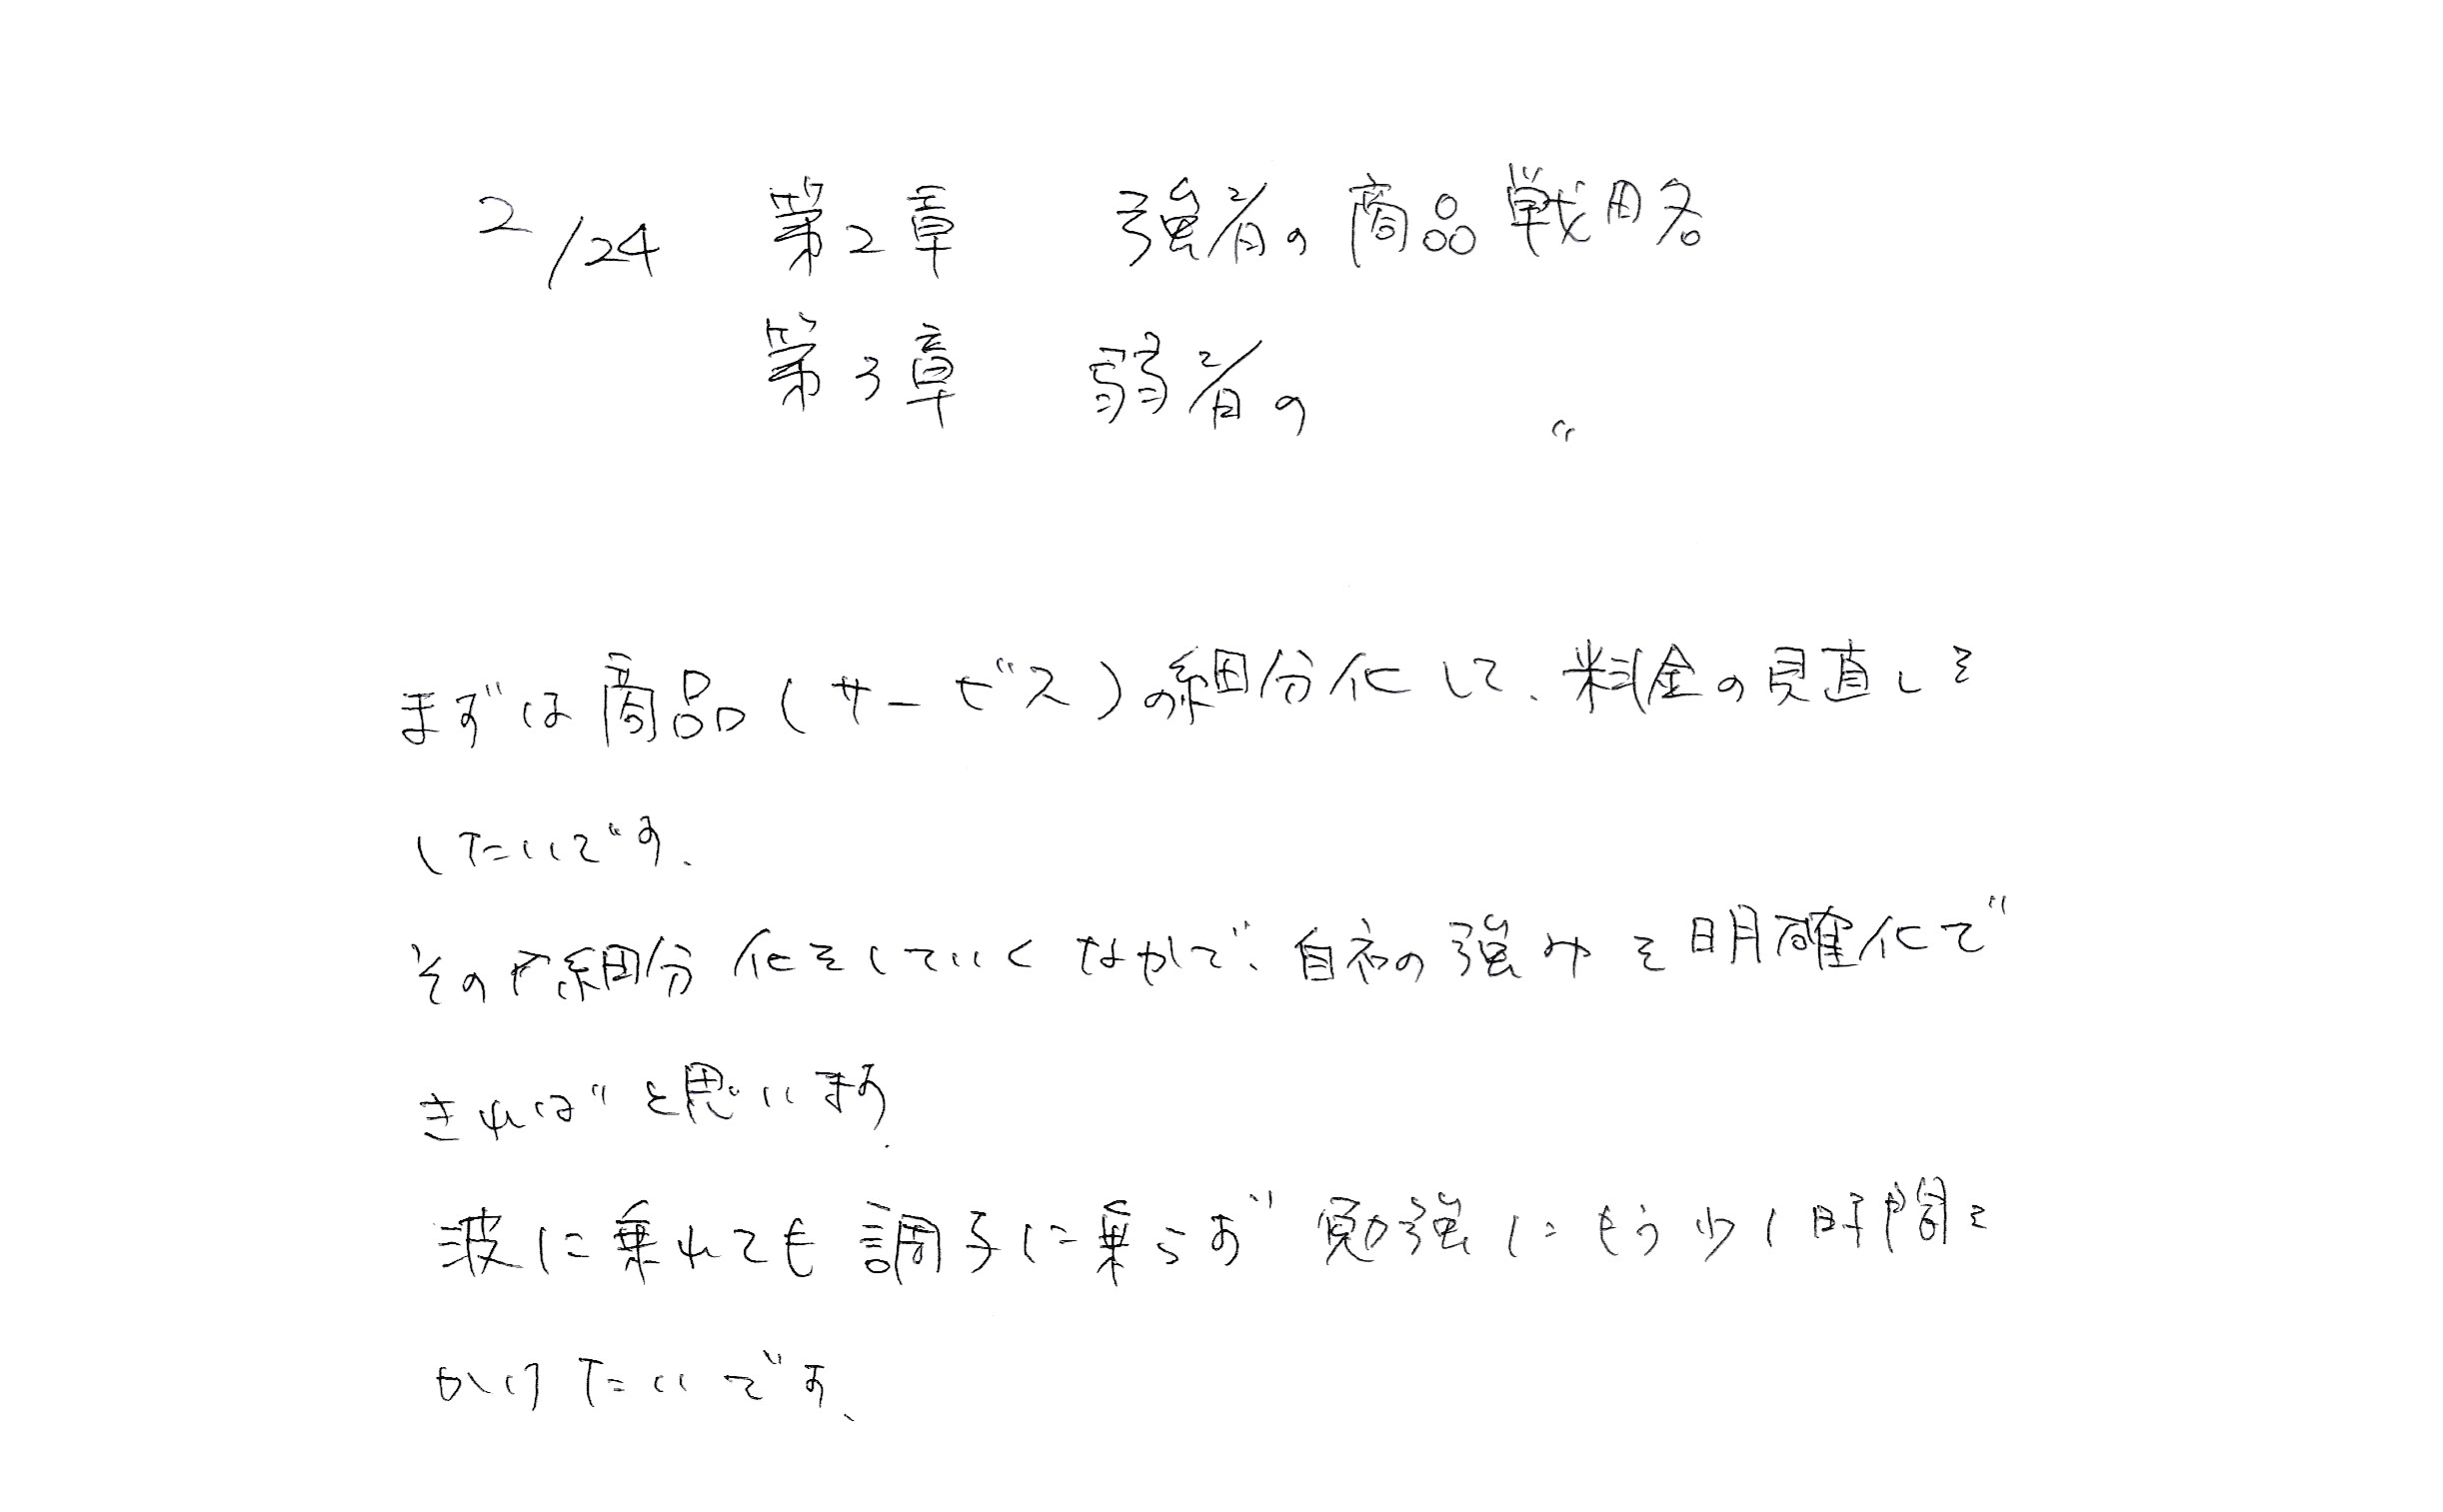 2/24 第2章 強者の商品戦略
第3章 弱者の 〃
まずは商品(サービス)の細分化して、料金の見直しを
したいです、
その細分化をしていくなかで、自社の強みを明確化で
きればと思います.
波に乗れても調子に乗らず勉強にもう少し時間を
かけたいです、